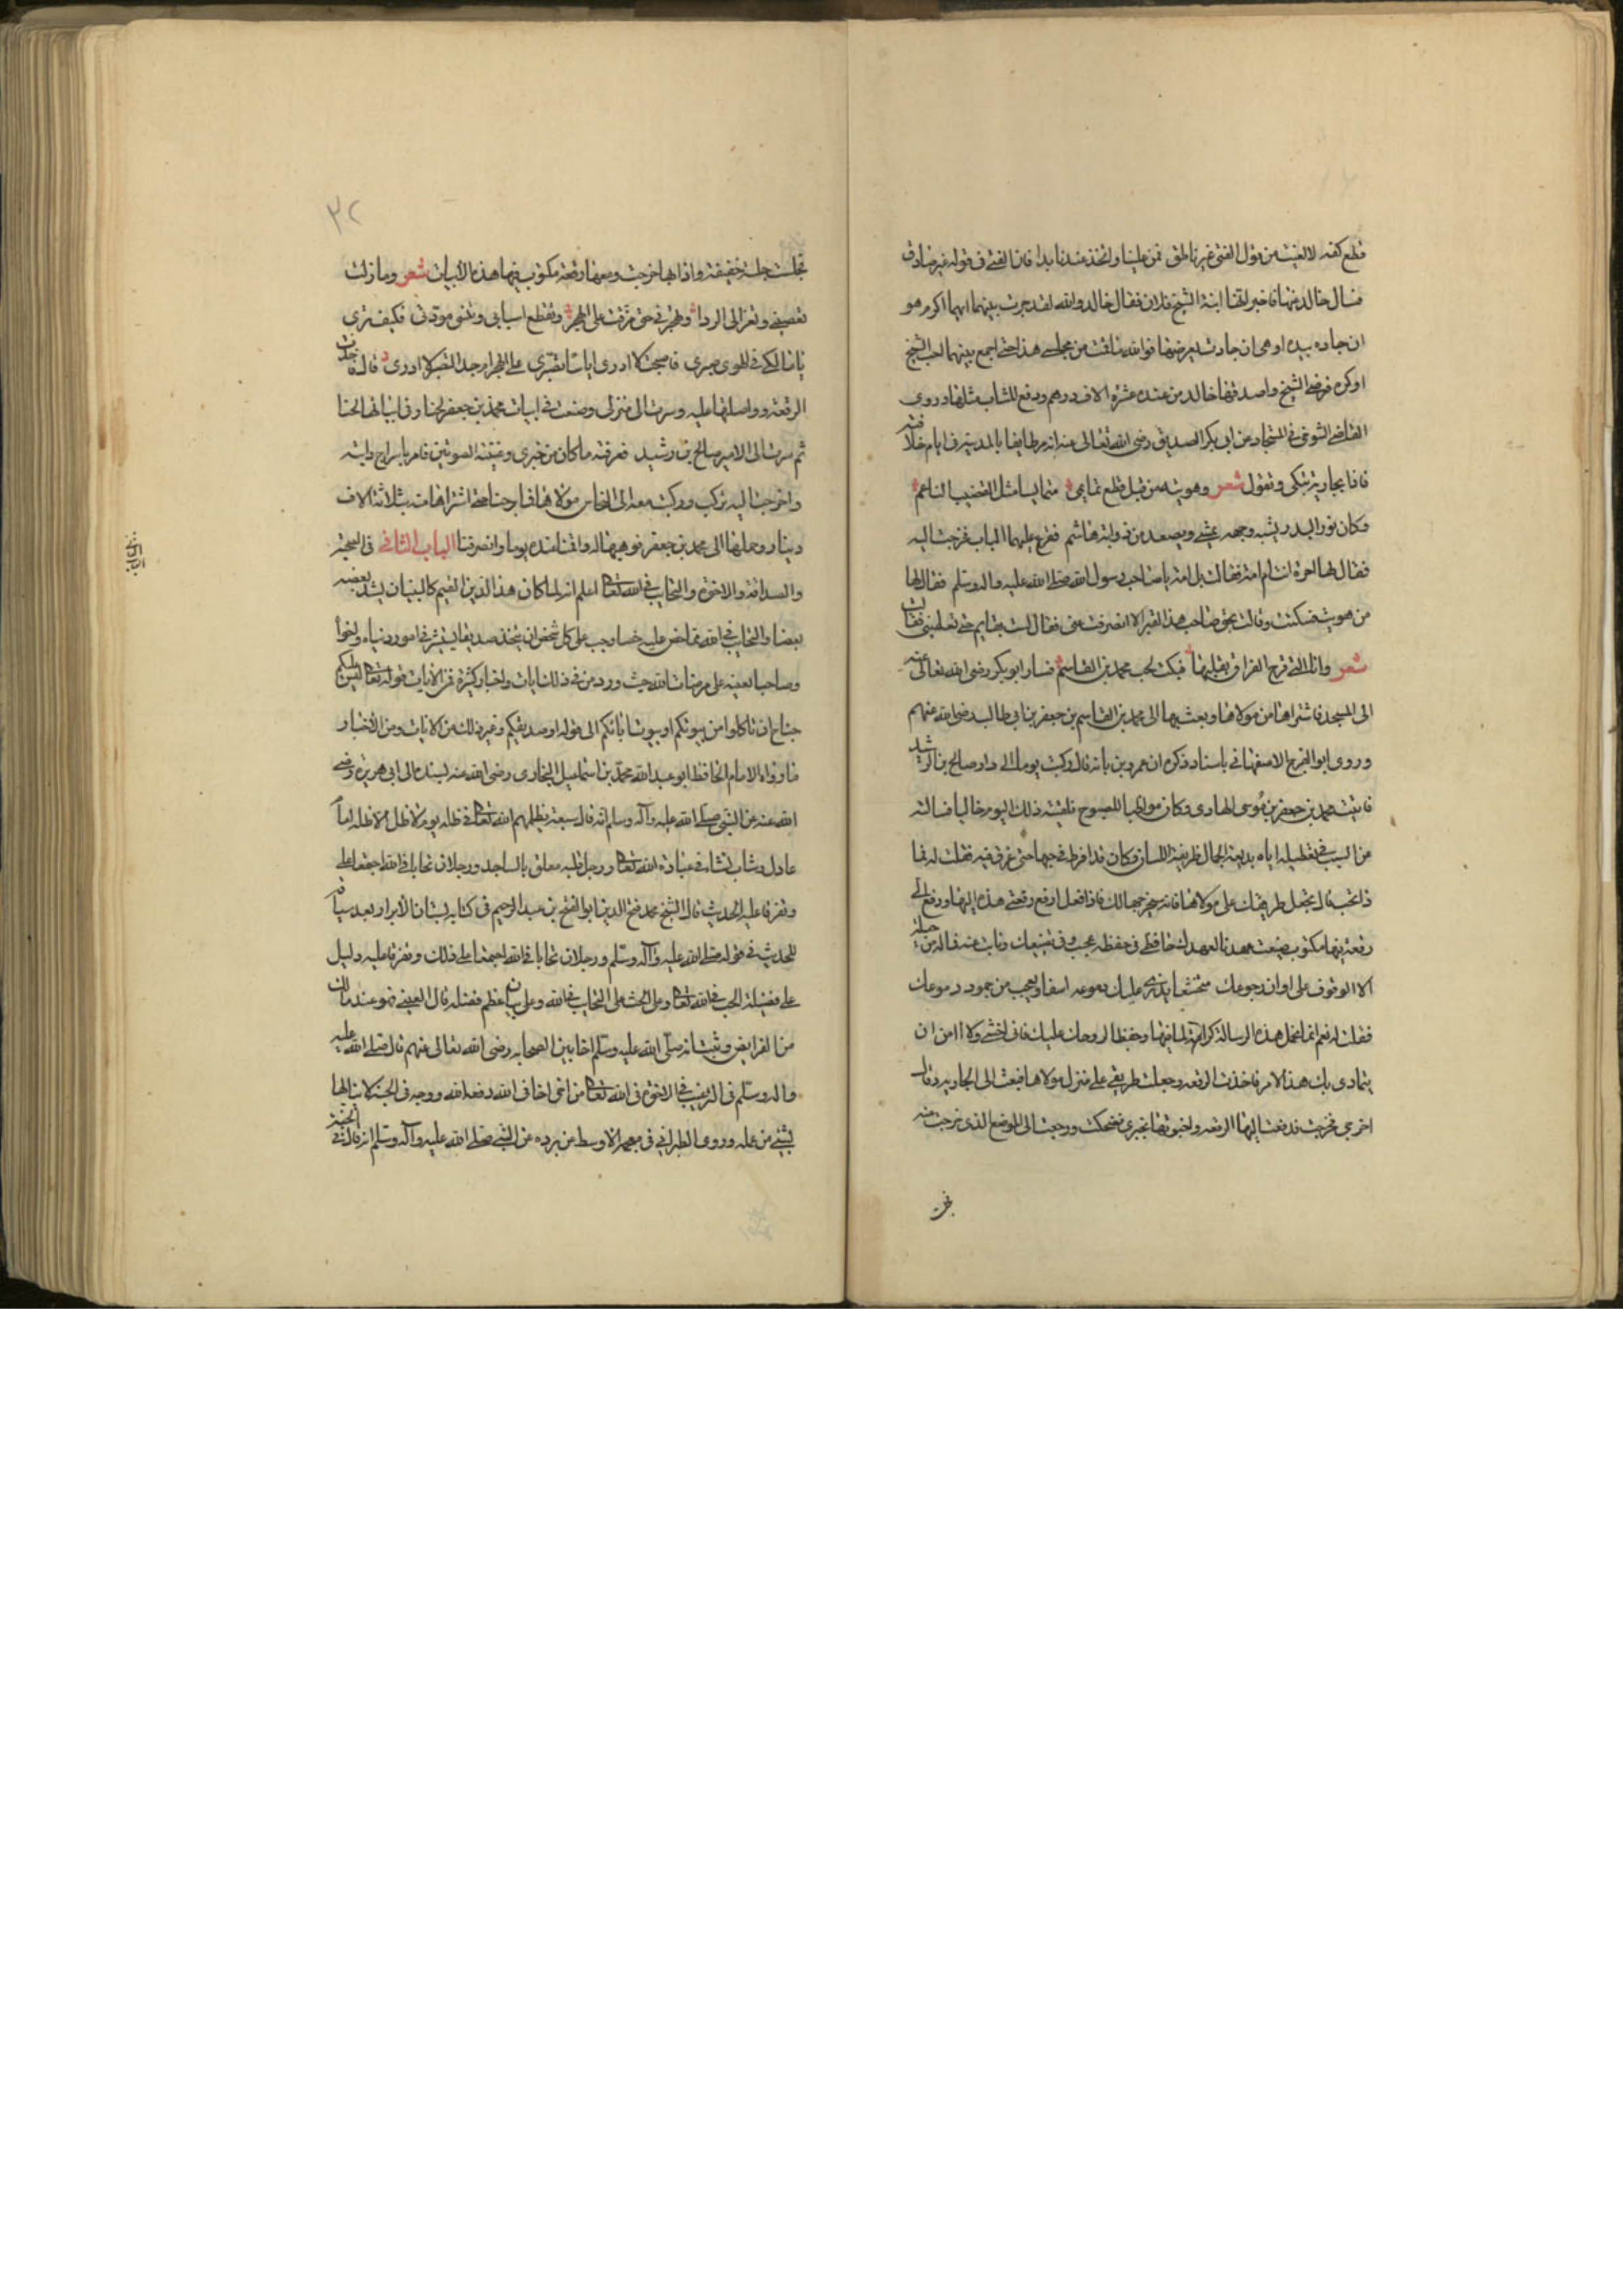 قطع كفه لا الغيت من قول الفتى غير ناطق فمن علينا واتخذ عندنا يدا فان الفتى في قوله غير صادق
فسال خالد عنها فاخبر انها ابنة الشيخ فلان فقال خالد والله لقد حرت بينهما ايهما اكرم هو
ان جاد بيده او هي ان جادت بعرضها فوالله ما اقت من مجلسي هذا حتى اجمع بينهما احب الشيخ
او كره فرضى الشيخ واصدقها خالد من عنده عشرة الاف درهم ودفع للشاب مثلها وروى
القاضي التنوخي في المستجاد عن ابي بكر الصديق رضى الله تعالى عنه انه مر طايفا بالمدينة في ايام خلافته
فاذا بجارية تبكى وتقول شعر وهويته من قبل قطع تمايمى متمايسا مثل القضيب الناعم
وكان نور البدر يشبه وجهه يمشي ويصعد من ذوابة هاشم فقرع عليهما الباب فخرجت اليه
فقال لها احرة انت ام امة فقالت بل امة يا صاحب رسول الله صلى الله عليه واله وسلم فقال لها
من هويت فسكتت وقالت بحق صاحب هذا القبر الا انصرفت عنى فقال لست بقايم حتى تعلمينى فقالت
شعر وانا التي قرح الفراق بقلبها فبكت لحب محمد بن القاسم فسار ابو بكر رضى الله تعالى عنه
الى المسجد فاشتراها من مولاها وبعث بها الى محمد بن القاسم بن جعفر بن ابي طالب رضى الله عنهم
وروى ابو الفرج الاصفهاني باسناد ذكره ان عمرو بن بانة قال ركبت يوما الى دار صالح بن الرشيد
فاتيت محمد بن جعفر بن موسى الهادى وكان مواظبا للصبوح فلقيته ذلك اليوم خاليا فسالته
من السبب في تعطيله اياه بديعة الجمال ظريفة اللسان وكان قد افرط في حبها حتى عرف فيه فقلت له فما
ذا تحب قال تجعل طريقك على مولاها فانه يخرجها لك فاذا فعل ادفع رقعتي هذه اليها ودفع الى
رقعة فيها مكتوب ضيعت عهد فتى لعهدك حافظ في حفظه عجب وفي تضييعك
الا الوقوف على اوان رجوعك متخشعا يذرى عليك دموعه اسفا ويعجب من جمود دموعك
فقلت له نعم انما احمل هذه الرسالة كرامة لما فيها وحفظا لروحك عليك فاني اخشى ولا امن ان
يتمادى بك هذا الامر فاخذت الرقعة وجعلت طريقي على منزل مولاها فبعث الى الجارية وقال
اخرجي فخرجت فدفعت اليها الرقعة واخبرتها بخبرى فضحكت ورجعت الى الموضع الذى خرجت منه
٣٢
فجلست جلسة خفيفة واذا بها خرجت ومعها رقعة مكتوب فيها هذه الابيات شعر وما زلت
تعصيني وتعزا الى الردا وتهجرني حتى مرنت على الهجر وتقطع اسبابي وتنسى مودتي فكيف ترى
يا مالكي في الهوى صبرى فاصبحت لا ادرى اياسا تصبرى على الهجر ام جد التصبر لا ادرى قال فاخذت
الرقعة وواصلتها عليه وسرت الى منزلى وصنعت في ابيات محمد بن جعفر لحنا وفي ابياتها لحنا
ثم سرت الى الامير صالح بن رشيد فعرفته ما كان من خبرى وغنيته الصوتين فامر باسراج دابته
واخرجت اليه فركب وركبت معه الى النخاس مولاها فما برحنا حتى اشتراها منه بثلاثة الاف
دينار وحملها الى محمد بن جعفر فوهبها له واقمنا عنده يوما وانصرفنا الباب الثاني في الصحبة
والصداقة والاخوة والتحاب في الله تعالى اعلم انه لما كان هذا الدين القيم كالبنيان يشد بعضه
بعضا والتحاب في الله مما حض عليه وجب على كل شخص ان يتخذ صديقا في امور دنياه واخوا
وصاحبا يعينه على مرضات الله حيث ورد من في ذلك ايات واخبار كثيرة فمن الايات قوله تعالى ليس عليكم
جناح ان تاكلوا من بيوتكم او بيوت ابائكم الى قوله او صديقكم وغير ذلك من الايات ومن الاخبار
ما رواه الامام الحافظ ابو عبد الله محمد بن اسماعيل البخارى رضى الله عنه بسنده الى ابي هريرة رضى
الله عنه عن النبي صلى الله عليه وآله وسلم انه قال سبعة يظلهم الله تعالى في ظله يوم لا ظل الا ظله امام
عادل وشاب نشا في عبادة الله تعالى ورجل قلبه معلق بالمساجد ورجلان تحابا في الله اجتمعا عليه
وتفرقا عليه الحديث قال الشيخ محمد فتح الدين ابو الفتح بن عبد الرحيم في كتابه بستان الابرار بعد سياقه
للحديث في قوله صلى الله عليه وآله وسلم ورجلان تحابا في الله اجتمعا على ذلك وتفرقا عليه دليل
على فضيلة الحب في الله تعالى وعلى الحث على التحاب في الله وعلى بيان عظم فضله قال العيني وهو عند مالك
من الفرايض وثبت انه صلى الله عليه وسلم اخا بين الصحابه رضى الله تعالى عنهم قال صلى الله عليه
واله وسلم في الترغيب في الاخوة في الله تعالى من اخى اخا في الله رفعه الله درجة في الجنة لا ينالها
بشئ من عمله وروى الطبراني في معجمه الاوسط من بردة عن النبي صلى الله عليه وآله وسلم انه قال في الجنة
فجلت